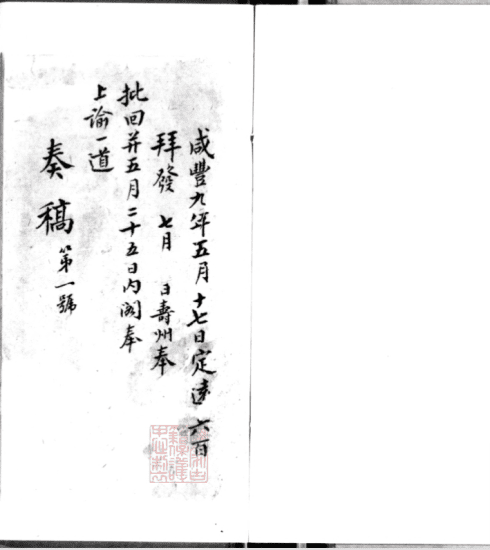 咸豐九年五月十七日定遠六百
拜發 七月 日壽州奉
批回并五月二十五日內閣奉
上諭一道
奏稿 第一號